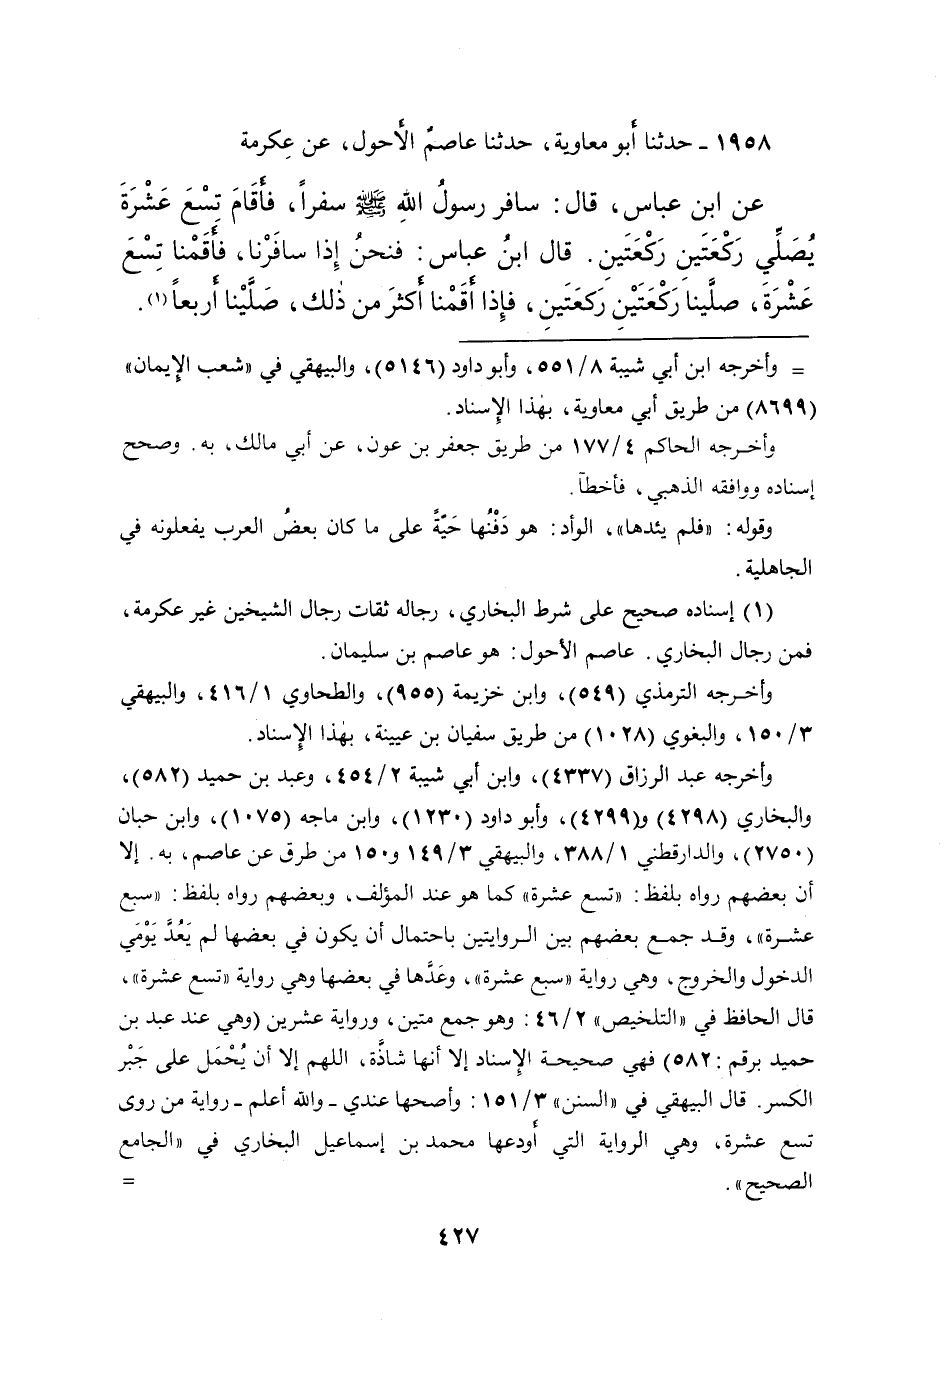 ١٩٥٨ - حدثنا أَبو معاوية، حدثنا عاصمٌ الأَحول، عن عِكرمة
عن ابن عباس، قال: سافر رسولُ اللهِ ﷺ سفراً، فأَقَامَ تِسْعَ عَشْرَةَ
يُصَلِّي رَكْعَتَينِ رَكْعَتَينِ. قال ابنُ عباس: فنحنُ إِذا سافَرْنا، فأَقَمْنا تِسْعَ
عَشْرَةَ، صلَّينا رَكْعَتَيْنِ رَكعَتَينِ، فإِذا أَقَمْنا أَكثَرَ من ذٰلك، صَلَّيْنا أَربعاً (١).
= وأخرجه ابن أبي شيبة ٥٥١/٨، وأبو داود (٥١٤٦)، والبيهقي في «شعب الإيمان»
(٨٦٩٩) من طريق أبي معاوية، بهٰذا الإِسناد.
وأخرجه الحاكم ١٧٧/٤ من طريق جعفر بن عون، عن أبي مالك، به. وصحح
إسناده ووافقه الذهبي، فأخطآ.
وقوله: «فلم يئدها»، الوأد: هو دَفْنُها حَيّةً على ما كان بعضُ العرب يفعلونه في
الجاهلية.
(١) إسناده صحيح على شرط البخاري، رجاله ثقات رجال الشيخين غير عكرمة،
فمن رجال البخاري. عاصم الأحول: هو عاصم بن سليمان.
وأخرجه الترمذي (٥٤٩)، وابن خزيمة (٩٥٥)، والطحاوي ٤١٦/١، والبيهقي
١٥٠/٣، والبغوي (١٠٢٨) من طريق سفيان بن عيينة، بهٰذا الإِسناد.
وأخرجه عبد الرزاق (٤٣٣٧)، وابن أبي شيبة ٤٥٤/٢، وعبد بن حميد (٥٨٢)،
والبخاري (٤٢٩٨) و(٤٢٩٩)، وأبو داود (١٢٣٠)، وابن ماجه (١٠٧٥)، وابن حبان
(٢٧٥٠)، والدارقطني ٣٨٨/١، والبيهقي ١٤٩/٣ و١٥٠ من طرق عن عاصم، به. إلا
أن بعضهم رواه بلفظ: «تسع عشرة» كما هو عند المؤلف، وبعضهم رواه بلفظ: «سبع
عشرة»، وقد جمع بعضهم بين الروايتين باحتمال أن يكون في بعضها لم يَعُدَّ يَوْمَي
الدخول والخروج، وهي رواية «سبع عشرة»، وعَدَّها في بعضها وهي رواية «تسع عشرة»،
قال الحافظ في «التلخيص» ٤٦/٢: وهو جمع متين، ورواية عشرين (وهي عند عبد بن
حميد برقم: ٥٨٢) فهي صحيحة الإِسناد إلا أنها شاذَّة، اللهم إلا أن يُحْمَل على جَبْر
الكسر. قال البيهقي في «السنن» ١٥١/٣: وأصحها عندي - والله أعلم - رواية من روى
تسع عشرة، وهي الرواية التي أَودعها محمد بن إسماعيل البخاري في «الجامع
الصحيح». =
٤٢٧